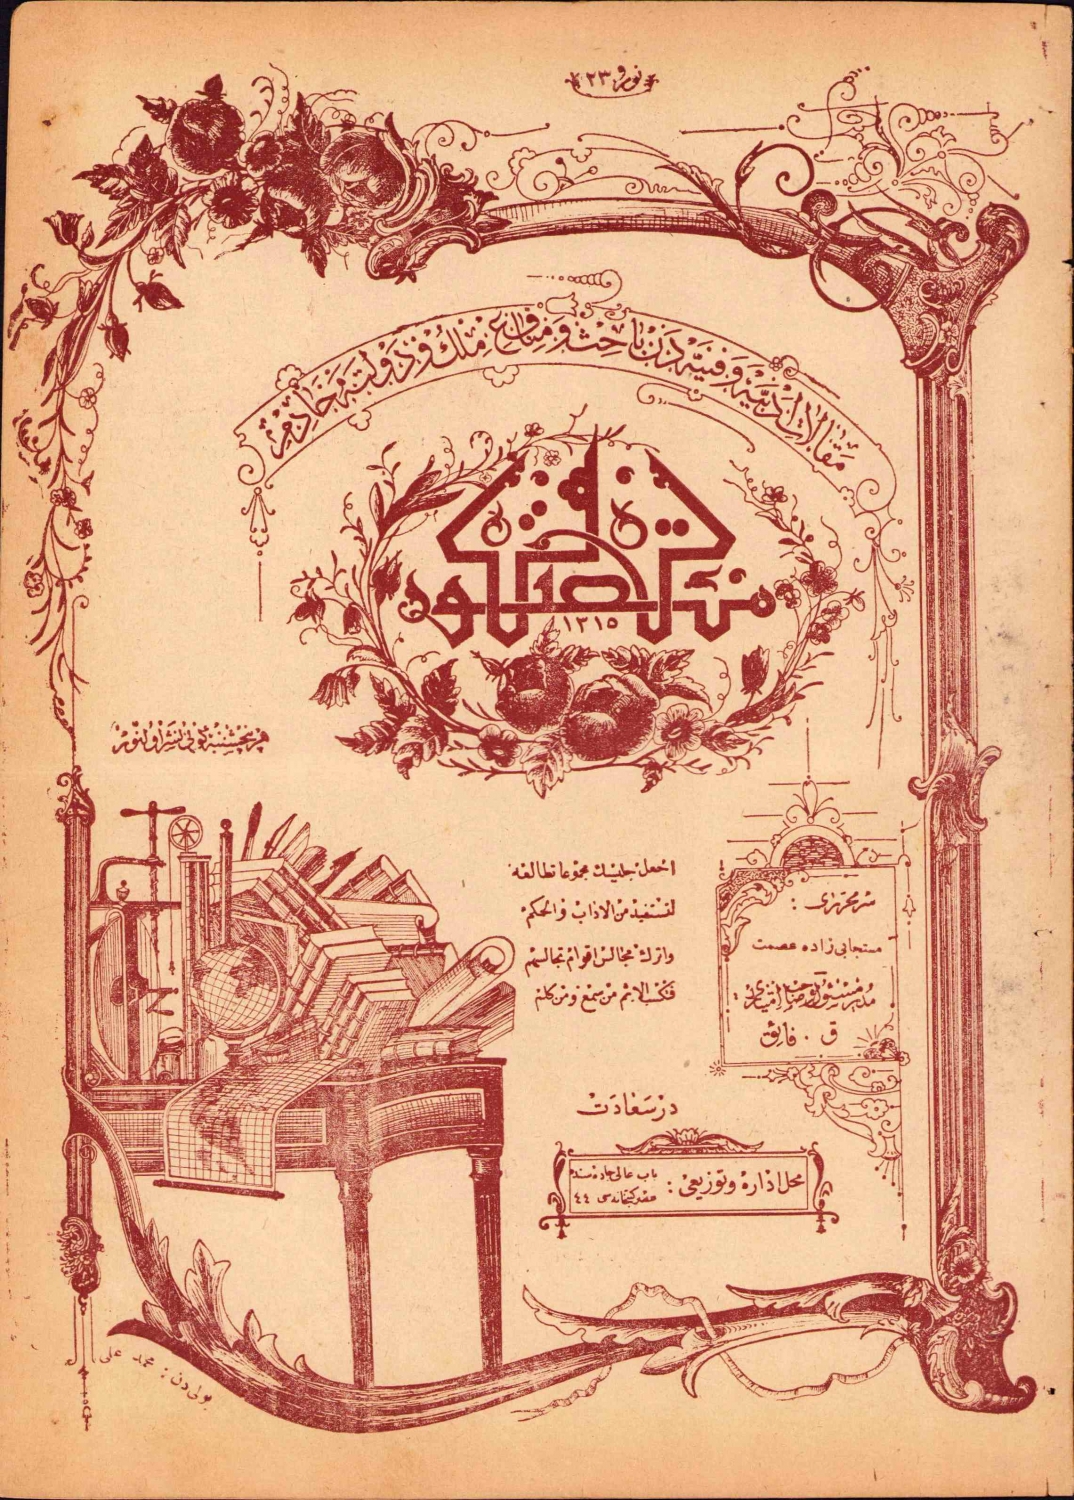 نومرو ٢٣
مقالات ادبيه و فنيه دن باحث و منافع ملك و دولته خادمدر
مصور
١٣١٥
هر پنجشنبه كونى نشر اولنور
اجعل جليسك مجموعا تطالعه
لتستفيد من الاداب والحكم
واترك مجالس اقوام تجالسهم
فتكسب الاثم من سمع ومن كلم
سر محررى :
مستجابى زاده عصمت
مدير مسئول و صاحب امتيازى :
ق . فائق
درسعادت
محل اداره و توزيعى :
باب عالى جاده سنده
كتبخانه سى ٤٤
بولى دن : محمد على